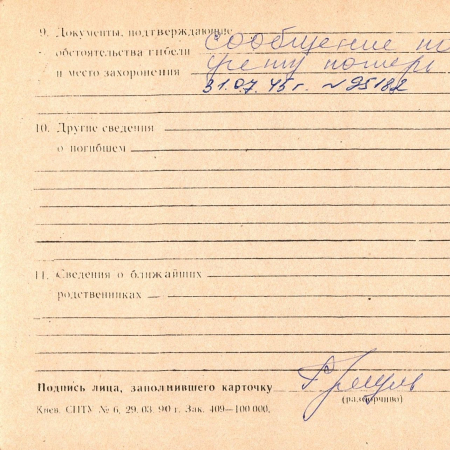 9. Документы, подтверждающие сообщение по
обстоятельства гибели учету потерь
и место захоронения 31.07.45 г. №95182
10. Другие сведения
о погибшем
11. Сведения о ближайших
родственниках
Подпись лица, заполнившего карточку
(разборчиво)
Киев. СПТУ № 6, 29. 03. 90 г. Зак. 409—100 000.